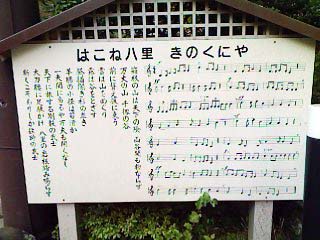 はこね八里 きのくにや
箱根の山は天下の険 函谷関も物ならず
万丈の山 千仞の谷
前に聳え
雲は山をめぐり
霧は谷をとざす
昼猶闇き杉の並木
羊腸の小径は苔滑か
一夫関に当るや万夫も開くなし
天下に旅する剛毅の武士
大刀腰に足駄がけ 八里の岩根踏み鳴らす
斯くこそありしか往時の武士